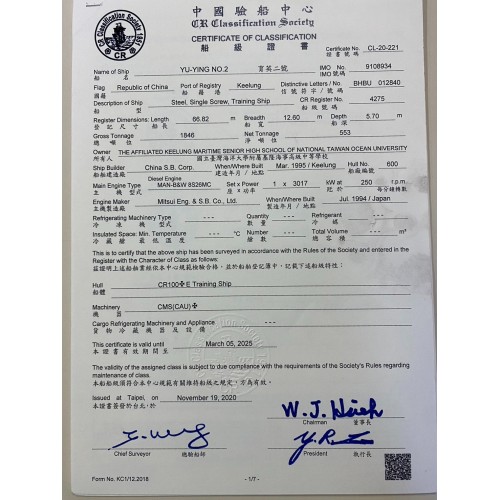 中國驗船中心
CR Classification Society
CERTIFICATE OF CLASSIFICATION
船級證書
Certificate No. CL-20-221
證書號碼
Name of Ship YU-YING NO.2 育英二號 IMO No. 9108934
船名 IMO 號碼
Flag Republic of China Port of Registry Keelung Distinctive Letters / No. BHBU 012840
國籍 船籍港 信號符字 / 號數
Description of Ship Steel, Single Screw, Training Ship CR Register No. 4275
船型 船級號碼
Register Dimensions: Length 66.82 m Breadth 12.60 m Depth 5.70 m
登記尺寸 船長 船寬 船深
Gross Tonnage 1846 Net Tonnage 553
總噸位 淨噸位
Owner THE AFFILIATED KEELUNG MARITIME SENIOR HIGH SCHOOL OF NATIONAL TAIWAN OCEAN UNIVERSITY
所有人 國立臺灣海洋大學附屬基隆海事高級中等學校
Ship Builder China S.B. Corp. When/Where Built Mar. 1995 / Keelung Hull No. 600
船舶建造廠 建造年月 / 地點 船廠編號
Diesel Engine
Main Engine Type MAN-B&W 8S26MC Set x Power 1 x 3017 kW at 250 r.p.m.
主機型式 座 x 功率 於 每分鐘轉數
Engine Maker Mitsui Eng. & S.B. Co., Ltd. When/Where Built Jul. 1994 / Japan
主機製造廠 製造年月 / 地點
Refrigerating Machinery Type --- Quantity --- Refrigerant ---
冷凍機型式 數量 冷媒
Insulated Space: Min. Temperature --- °C Number --- Total Volume --- m³
冷藏艙最低溫度 艙數 總容積
This is to certify that the above ship has been surveyed in accordance with the Rules of the Society and entered in the Register with the Character of Class as follows:
茲證明上述船舶業經依本中心規範檢驗合格，並於船舶登記簿中，記載下述船級特性：
Hull CR100✠E Training Ship
船體
Machinery CMS(CAU)✠
機器
Cargo Refrigerating Machinery and Appliance ---
貨物冷藏機器及設備
This certificate is valid until March 05, 2025
本證書有效期間至
The validity of the assigned class is subject to due compliance with the requirements of the Society's Rules regarding maintenance of class.
本船船級須符合本中心規範有關維持船級之規定，方為有效。
Issued at Taipei, on November 19, 2020
本證書簽發於台北，於
W. J. Hsieh
Chairman 董事長
Chief Surveyor 總驗船師
President 執行長
Form No. KC1/12.2018
- 1/7 -